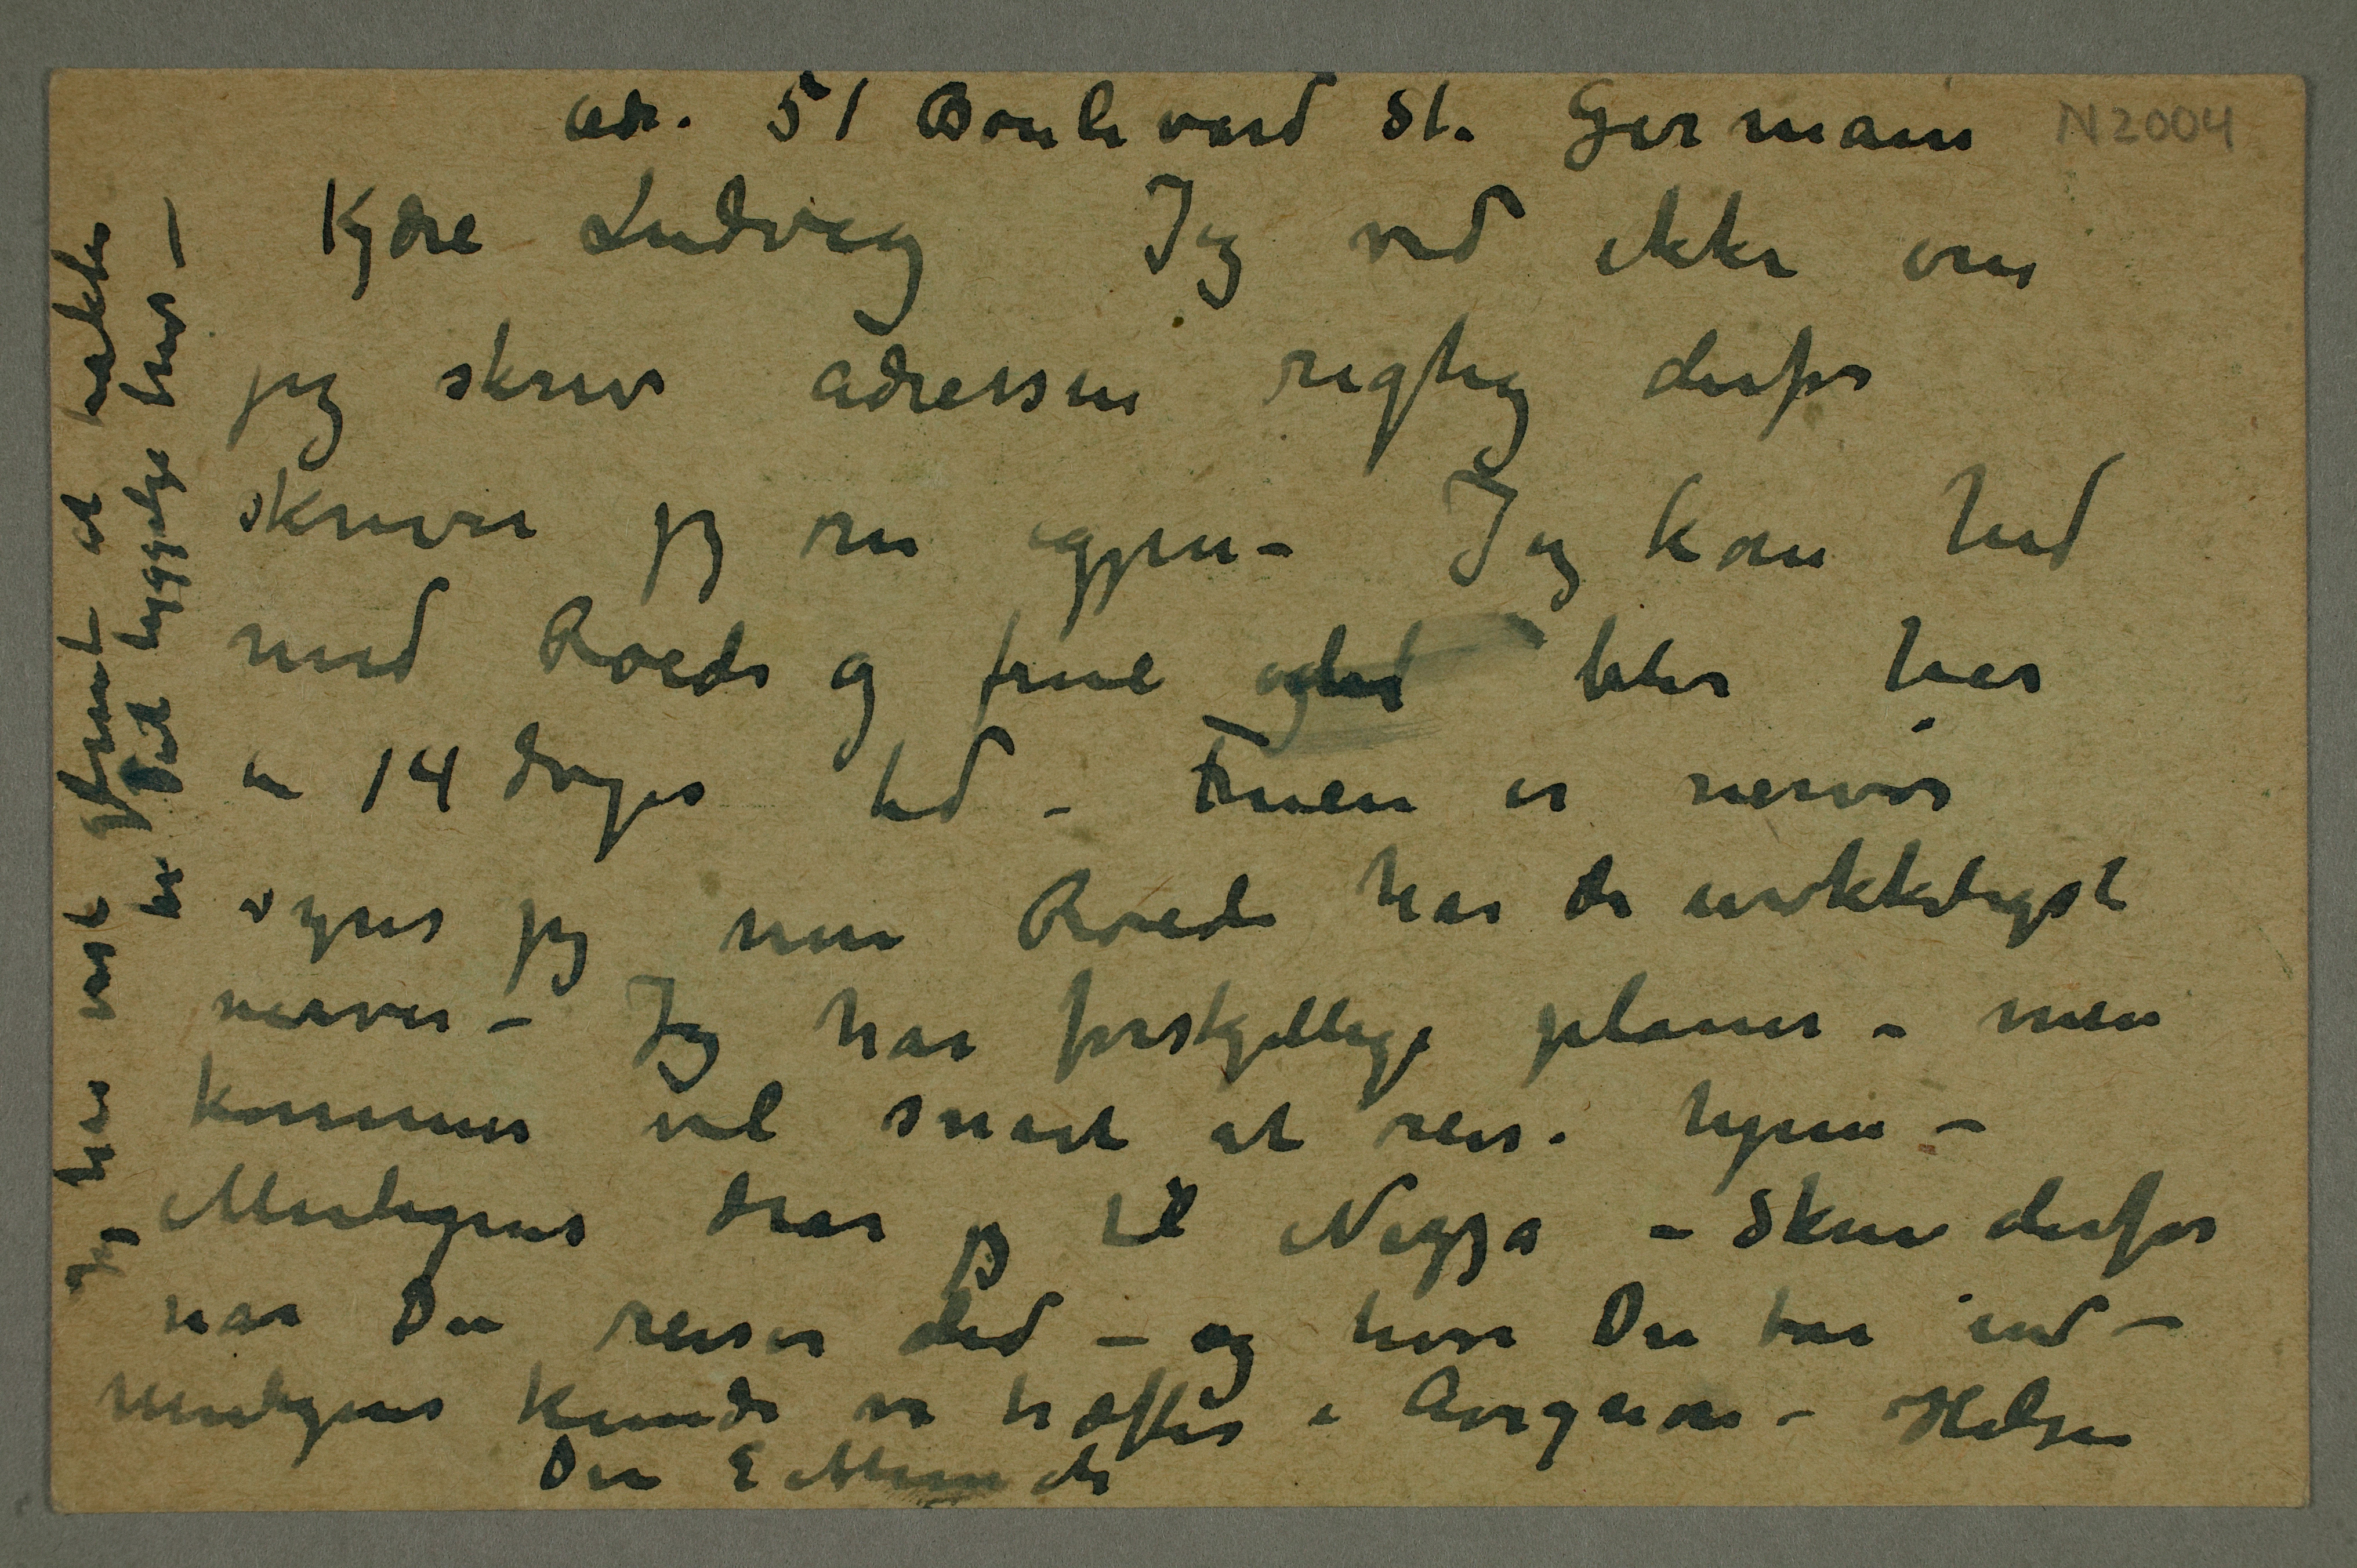 adr. 51 Boulevard St. Germain
N2004
Kjære Ludvig Jeg ved ikke om
jeg skrev adressen rigtig derfor
skriver jeg nu igjen – Jeg kom hid
med Roede og frue og blir her
en 14 dages tid – Fruen er nervøs
synes jeg men Roede har de urokkeligste
nerver – Jeg har forskjellige planer – men
kommer vel snart at reise hjem –
Muligens drar jeg til Nizza – Skriv derfor
nar Du reiser did – og hvor Du tar ind –
Muligens kunde vi træffes i Avignon – Hilsen
Din E Munch
Jeg har vist glemt at takke
for Dit hyggelige brev –